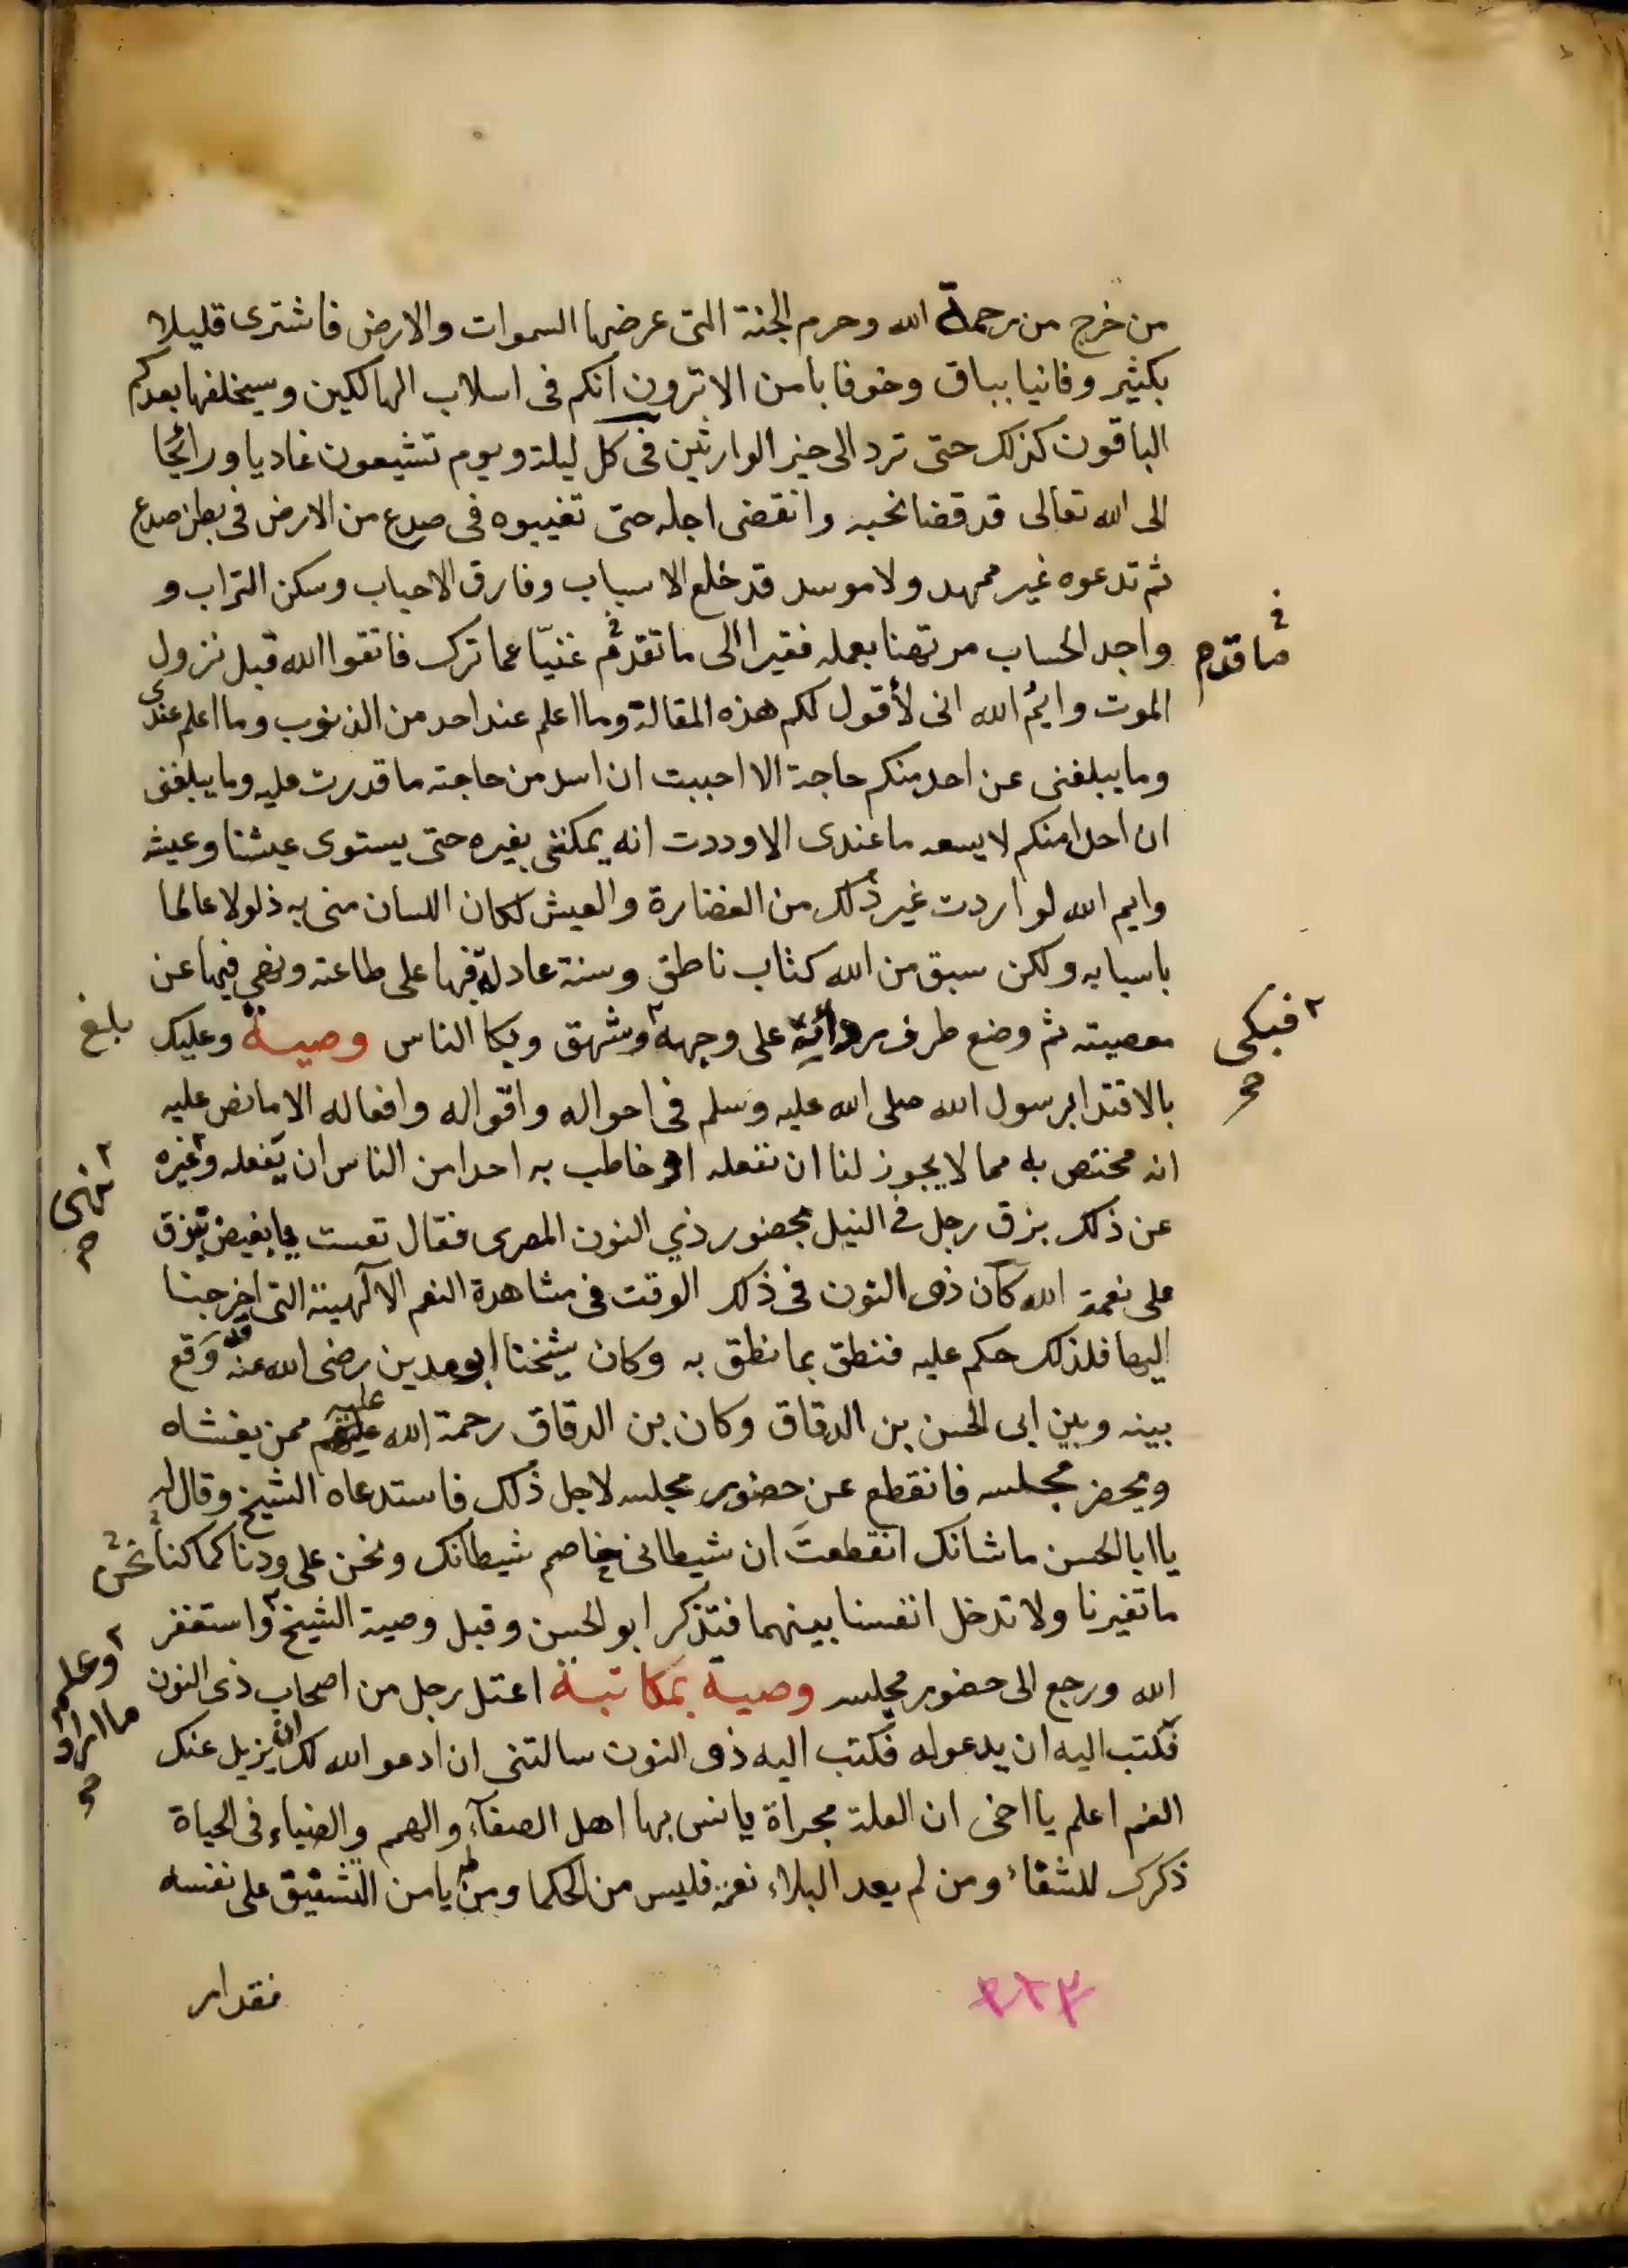 من خرج من رحمة الله وحرم الجنة التى عرضها السموات والارض فاشترى قليلا
بكثير وفانيا بباق وخوفا بامن الا ترون انكم فى اسلاب الهالكين وسيخلفها بعدكم
الباقون كذلك حتى ترد الى خير الوارثين فى كل ليلة ويوم تشيعون غاديا ورائحا
الى الله تعالى قد قضا نحبه وانقضى اجله حتى تغيبوه فى صدع من الارض فى بطن صدع
ثم تدعوه غير ممهد ولا موسد قد خلع الاسباب وفارق الاحباب وسكن التراب و
واجد الحساب مرتهنا بعمله فقيرا الى ما تقدم غنيّا عما ترك فاتقوا الله قبل نزول
ما قدم
الموت وايمُ الله انى لأقول لكم هذه المقالة وما اعلم عند احد من الذنوب وما اعلم عندى
وما يبلغنى عن احد منكم حاجة الا احببت ان اسد من حاجته ما قدرت عليه وما يبلغنى
ان احدا منكم لا يسعه ما عندى الا وددت انه يمكننى بغيره حتى يستوى عيشنا وعيشه
وايم الله لو اردت غير ذلك من الغضارة والعيش لكان اللسان منى به ذلولا عالما
باسبابه ولكن سبق من الله كتاب ناطق وسنة عادلة فيها على طاعته ونهى فيها عن
معصيته ثم وضع طرف ردائه على وجهه وشهق وبكا الناس وصية وعليك
فبكى
صح
بلغ
بالاقتدا برسول الله صلى الله عليه وسلم فى احواله واقواله وافعاله الا ما نص عليه
انه مختص به مما لا يجوز لنا ان نفعله او خاطب به احدا من الناس ان يفعله وغيره
نهى
صح
عن ذلك بزق رجل فى النيل بحضور ذي النون المصرى فقال تعست يا بغيض تبزق
على نعمة الله كان ذو النون فى ذلك الوقت فى مشاهدة النعم الالهية التى اخرجنا
اليها فلذلك حكم عليه فنطق بما نطق به وكان شيخنا ابو مدين رضى الله عنه قد وَقع
بينه وبين ابى الحسن بن الدقاق وكان بن الدقاق رحمة الله عليه ممن يغشاه
ويحضر مجلسه فانقطع عن حضور مجلسه لاجل ذلك فاستدعاه الشيخ وقال له
يا ابا الحسن ما شانك انقطعتَ ان شيطانى خاصم شيطانك ونحن على ودنا كما كنا
نحن
ما تغيرنا ولا تدخل انفسنا بينهما فتذكر ابو الحسن وقبل وصية الشيخ واستغفر
وعلم
ما اراد
صح
الله ورجع الى حضور مجلسه وصية بمكاتبة اعتل رجل من اصحاب ذى النون
فكتب اليه ان يدعو له فكتب اليه ذو النون سالتنى ان ادعو الله لك ان يزيل عنك
الغم اعلم يا اخى ان العلة مجراة يانس بها اهل الصفآء والهمم والضياء فى الحياة
ذكرك للشقاء ومن لم يعد البلاء نعمة فليس من الحكما ومن لم يامن الشقيق على نفسه
فقد امر